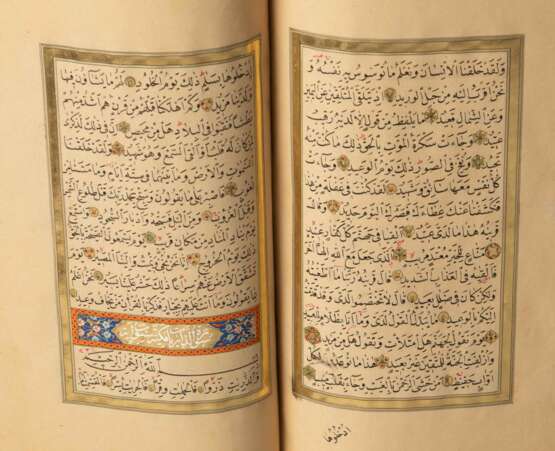 ولقد خلقنا الانسان ونعلم ما توسوس به نفسه و
نحن اقرب اليه من حبل الوريد اذ يتلقى المتلقيان عن اليمين
وعن الشمال قعيد ما يلفظ من قول الا لديه رقيب
عتيد وجاءت سكرة الموت بالحق ذلك ما كنت منه
تحيد ونفخ في الصور ذلك يوم الوعيد وجاءت
كل نفس معها سائق وشهيد لقد كنت في غفلة من هذا
فكشفنا عنك غطاءك فبصرك اليوم حديد و
قال قرينه هذا ما لدي عتيد القيا في جهنم كل كفار عنيد
مناع للخير معتد مريب الذي جعل مع الله الها اخر
فالقياه في العذاب الشديد قال قرينه ربنا ما اطغيته
ولكن كان في ضلال بعيد قال لا تختصموا لدي وقد قدمت
اليكم بالوعيد ما يبدل القول لدي وما انا بظلام للعبيد
يوم نقول لجهنم هل امتلات وتقول هل من مزيد
وازلفت الجنة للمتقين غير بعيد هذا ما توعدون لكل
اواب حفيظ من خشي الرحمن بالغيب وجاء بقلب منيب
ادخلوها
ادخلوها بسلام ذلك يوم الخلود لهم ما يشاؤن فيها
ولدينا مزيد وكم اهلكنا قبلهم من قرن هم اشد منهم
بطشا فنقبوا في البلاد هل من محيص ان في ذلك لذكرى
لمن كان له قلب او القى السمع وهو شهيد ولقد خلقنا
السموات والارض وما بينهما في ستة ايام وما مسنا من
لغوب فاصبر على ما يقولون وسبح بحمد ربك قبل طلوع الشمس
وقبل الغروب ومن اليل فسبحه وادبار السجود واستمع
يوم يناد المناد من مكان قريب يوم يسمعون الصيحة بالحق
ذلك يوم الخروج انا نحن نحيي ونميت والينا المصير يوم
تشقق الارض عنهم سراعا ذلك حشر علينا يسير نحن اعلم
بما يقولون وما انت عليهم بجبار فذكر بالقران من يخاف وعيد
بسم الله الرحمن الرحيم
والذاريات ذروا فالحاملات وقرا فالجاريات يسرا فالمقسمات